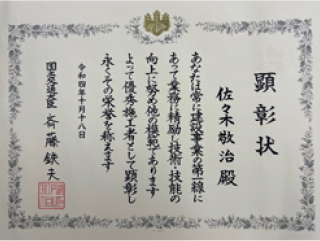 顕彰状
佐々木敬治殿
あなたは常に建設事業の第一線に
あって業務に精励し技術・技能の
向上に努め他の模範であります
よって優秀施工者として顕彰し
永くその栄誉を称えます
令和四年十月十八日
国土交通大臣 斉藤鉄夫